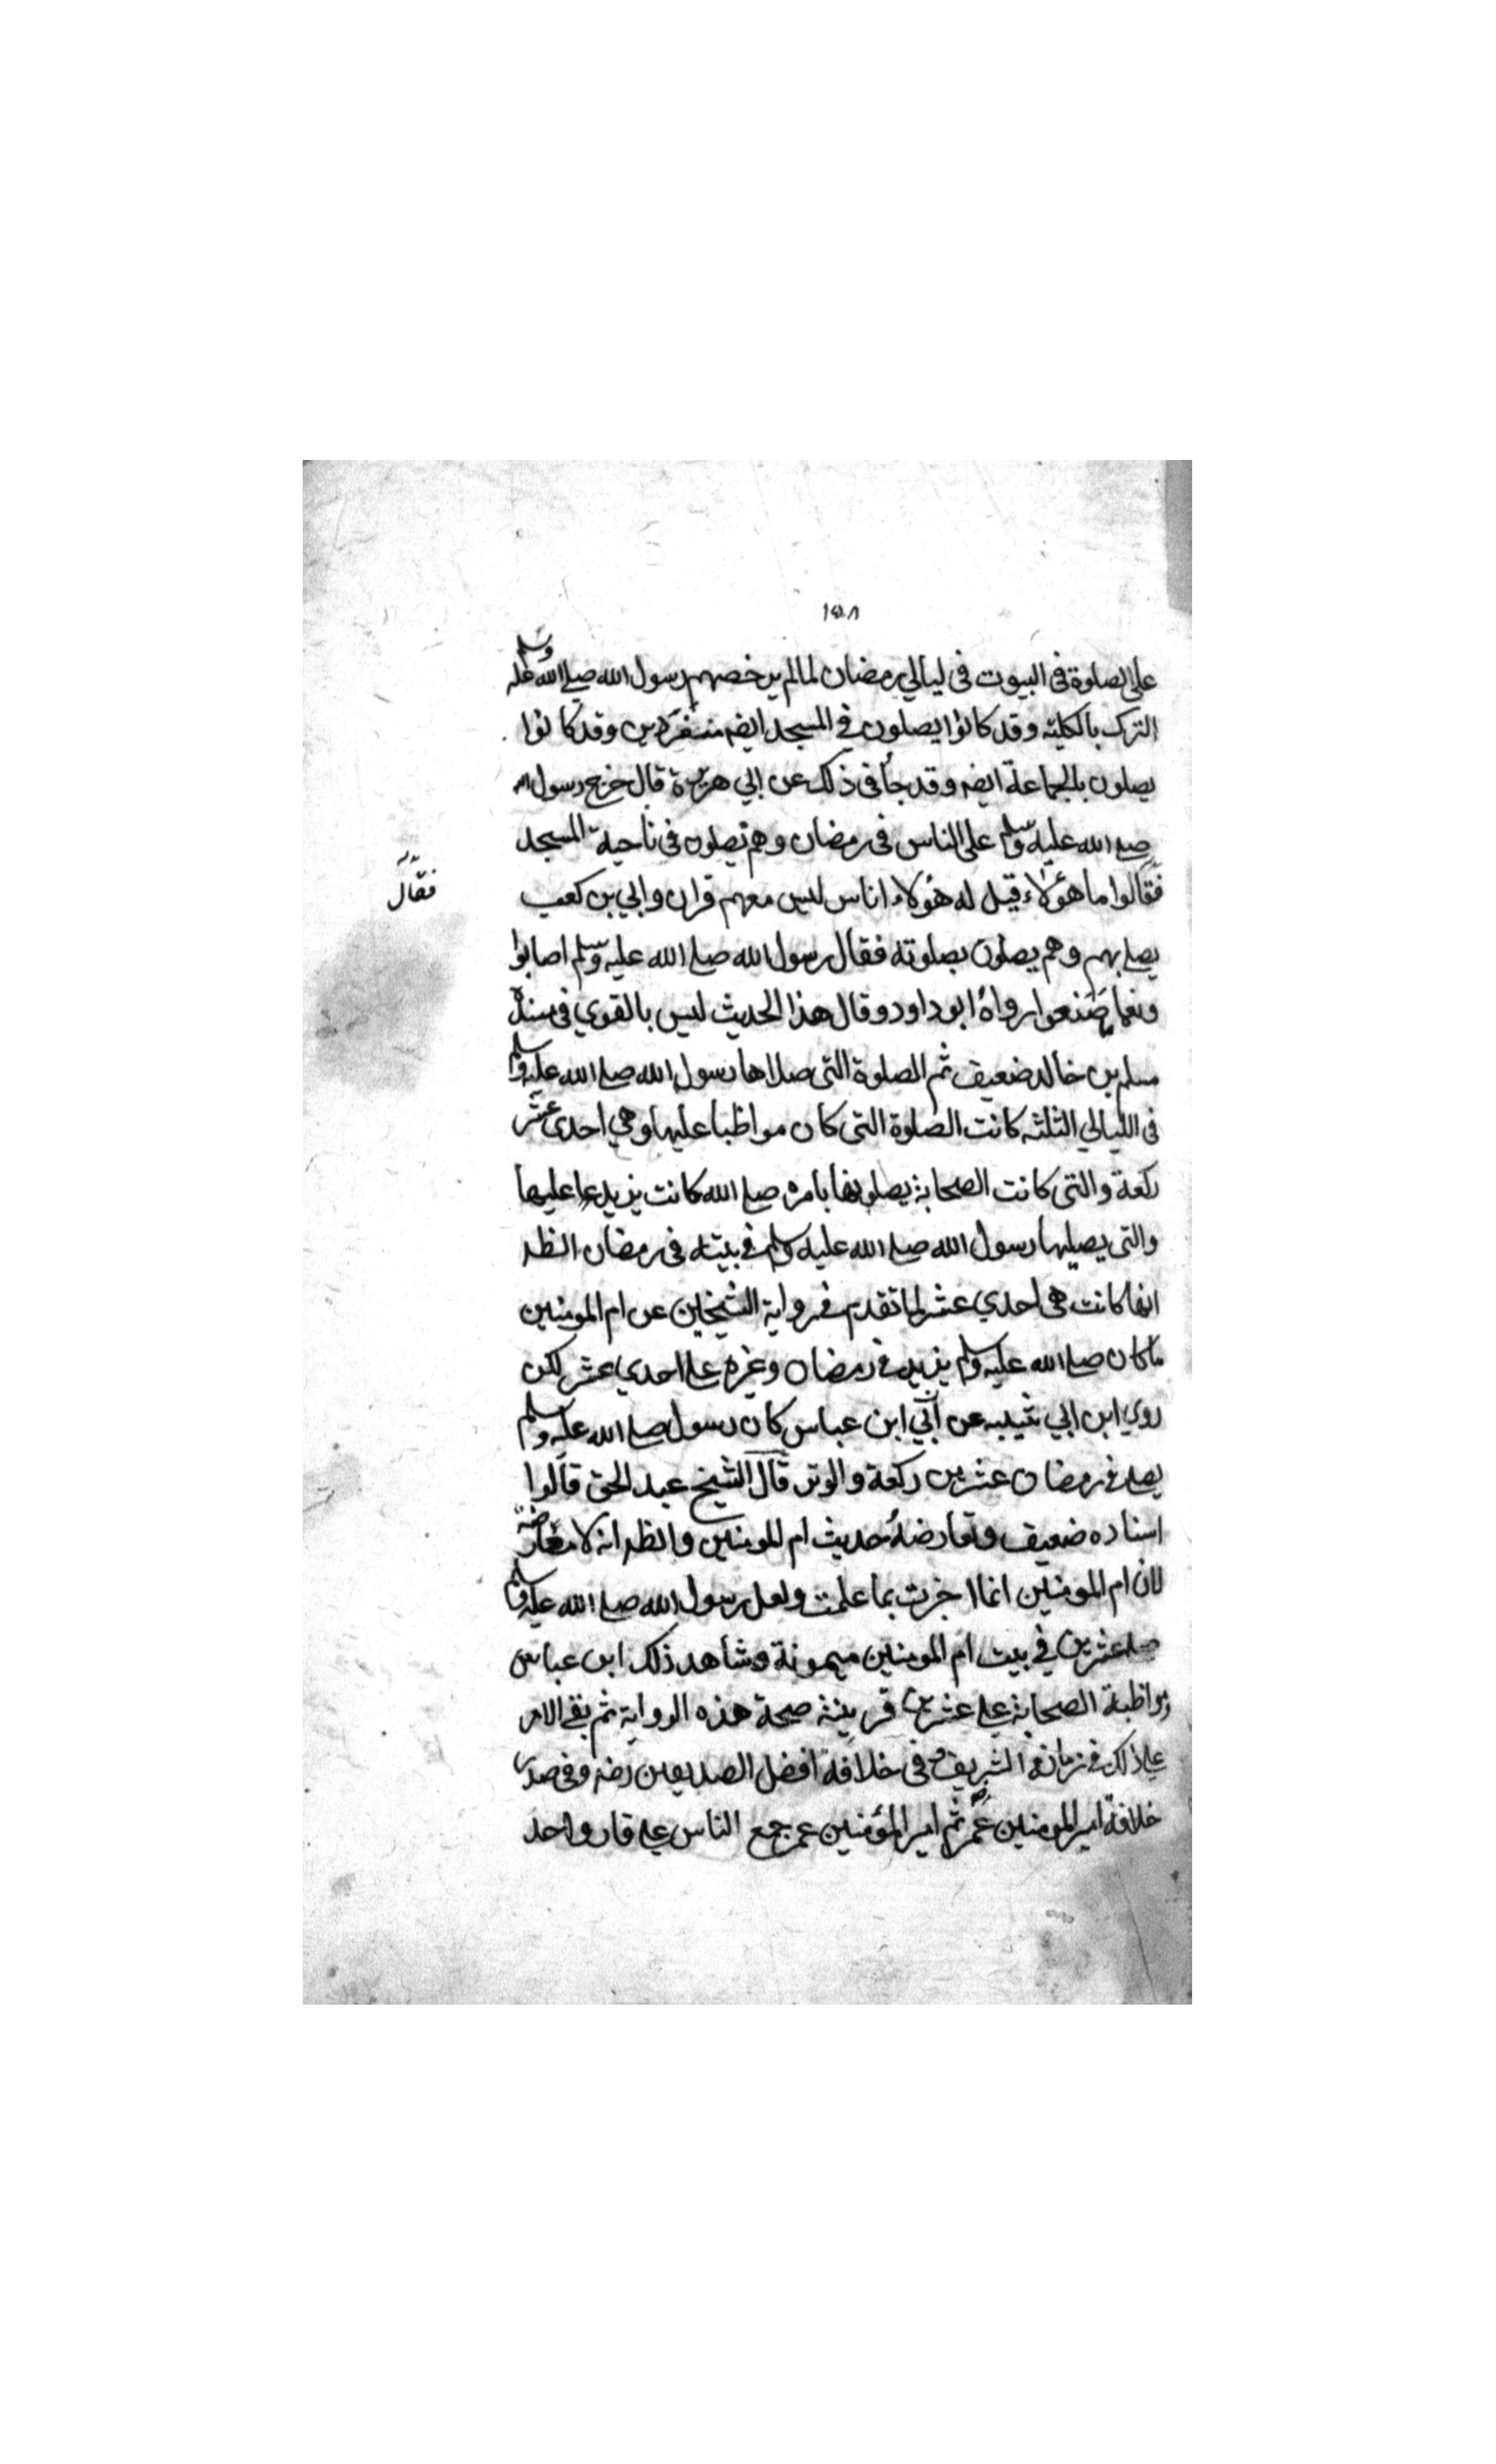 ١٥٨
على الصلوة فى البيوت فى ليالي رمضان لما لم يرخصهم رسول الله صلى الله عليه وسلم
الترك بالكلية وقد كانوا يصلون في المسجد ايضه منفردين وقد كانوا
يصلون بالجماعة ايضه وقد جأ فى ذلك عن ابي هريرة قال خرج رسول الله
صلى الله عليه وسلم على الناس فى رمضان وهم يصلون فى ناحية المسجد
فقالوا ما هؤلاء قيل له هؤلاء اناس ليس معهم قران وابي بن كعب
فقال
يصلي بهم وهم يصلون بصلوته فقال رسول الله صلى الله عليه وسلم اصابوا
ونعما صنعوا رواه ابو داود وقال هذا الحديث ليس بالقوي فى سنده
مسلم بن خالد ضعيف ثم الصلوة التى صلاها رسول الله صلى الله عليه وسلم
فى الليالي الثلثه كانت الصلوة التى كان مواظبا عليها وهي احدى عشر
ركعة والتى كانت الصحابة يصلونها بامره صلى الله كانت يزيد عليها
والتى يصليها رسول الله صلى الله عليه وسلم في بيته فى رمضان الظ
انها كانت هى احدي عشر لما تقدم في رواية الشيخين عن ام المومنين
ما كان صلى الله عليه وسلم يزيد في رمضان وغيره على احدي عشر لكن
روي ابن ابي شيبه عن ابي ابن عباس كان رسول صلى الله عليه وسلم
يصلي في رمضان عشرين ركعة والوتر قال الشيخ عبد الحق قالوا
اسناده ضعيف وتعارضه حديث ام المومنين والظ انه لا معارضة
لان ام المومنين انما اخبرت بما علمت ولعل رسول الله صلى الله عليه وسلم
صلى عشرين في بيت ام المومنين ميمونة وشاهد ذلك ابن عباس
ومواظبة الصحابة على عشرين قرينة صحة هذه الرواية ثم بقي الامر
على ذلك في زمانه الشريف وفى خلافة افضل الصديقين رضه وفى صدر
خلافة امير المومنين عمر رضه ثم امير المؤمنين عمر جمع الناس على قار واحد